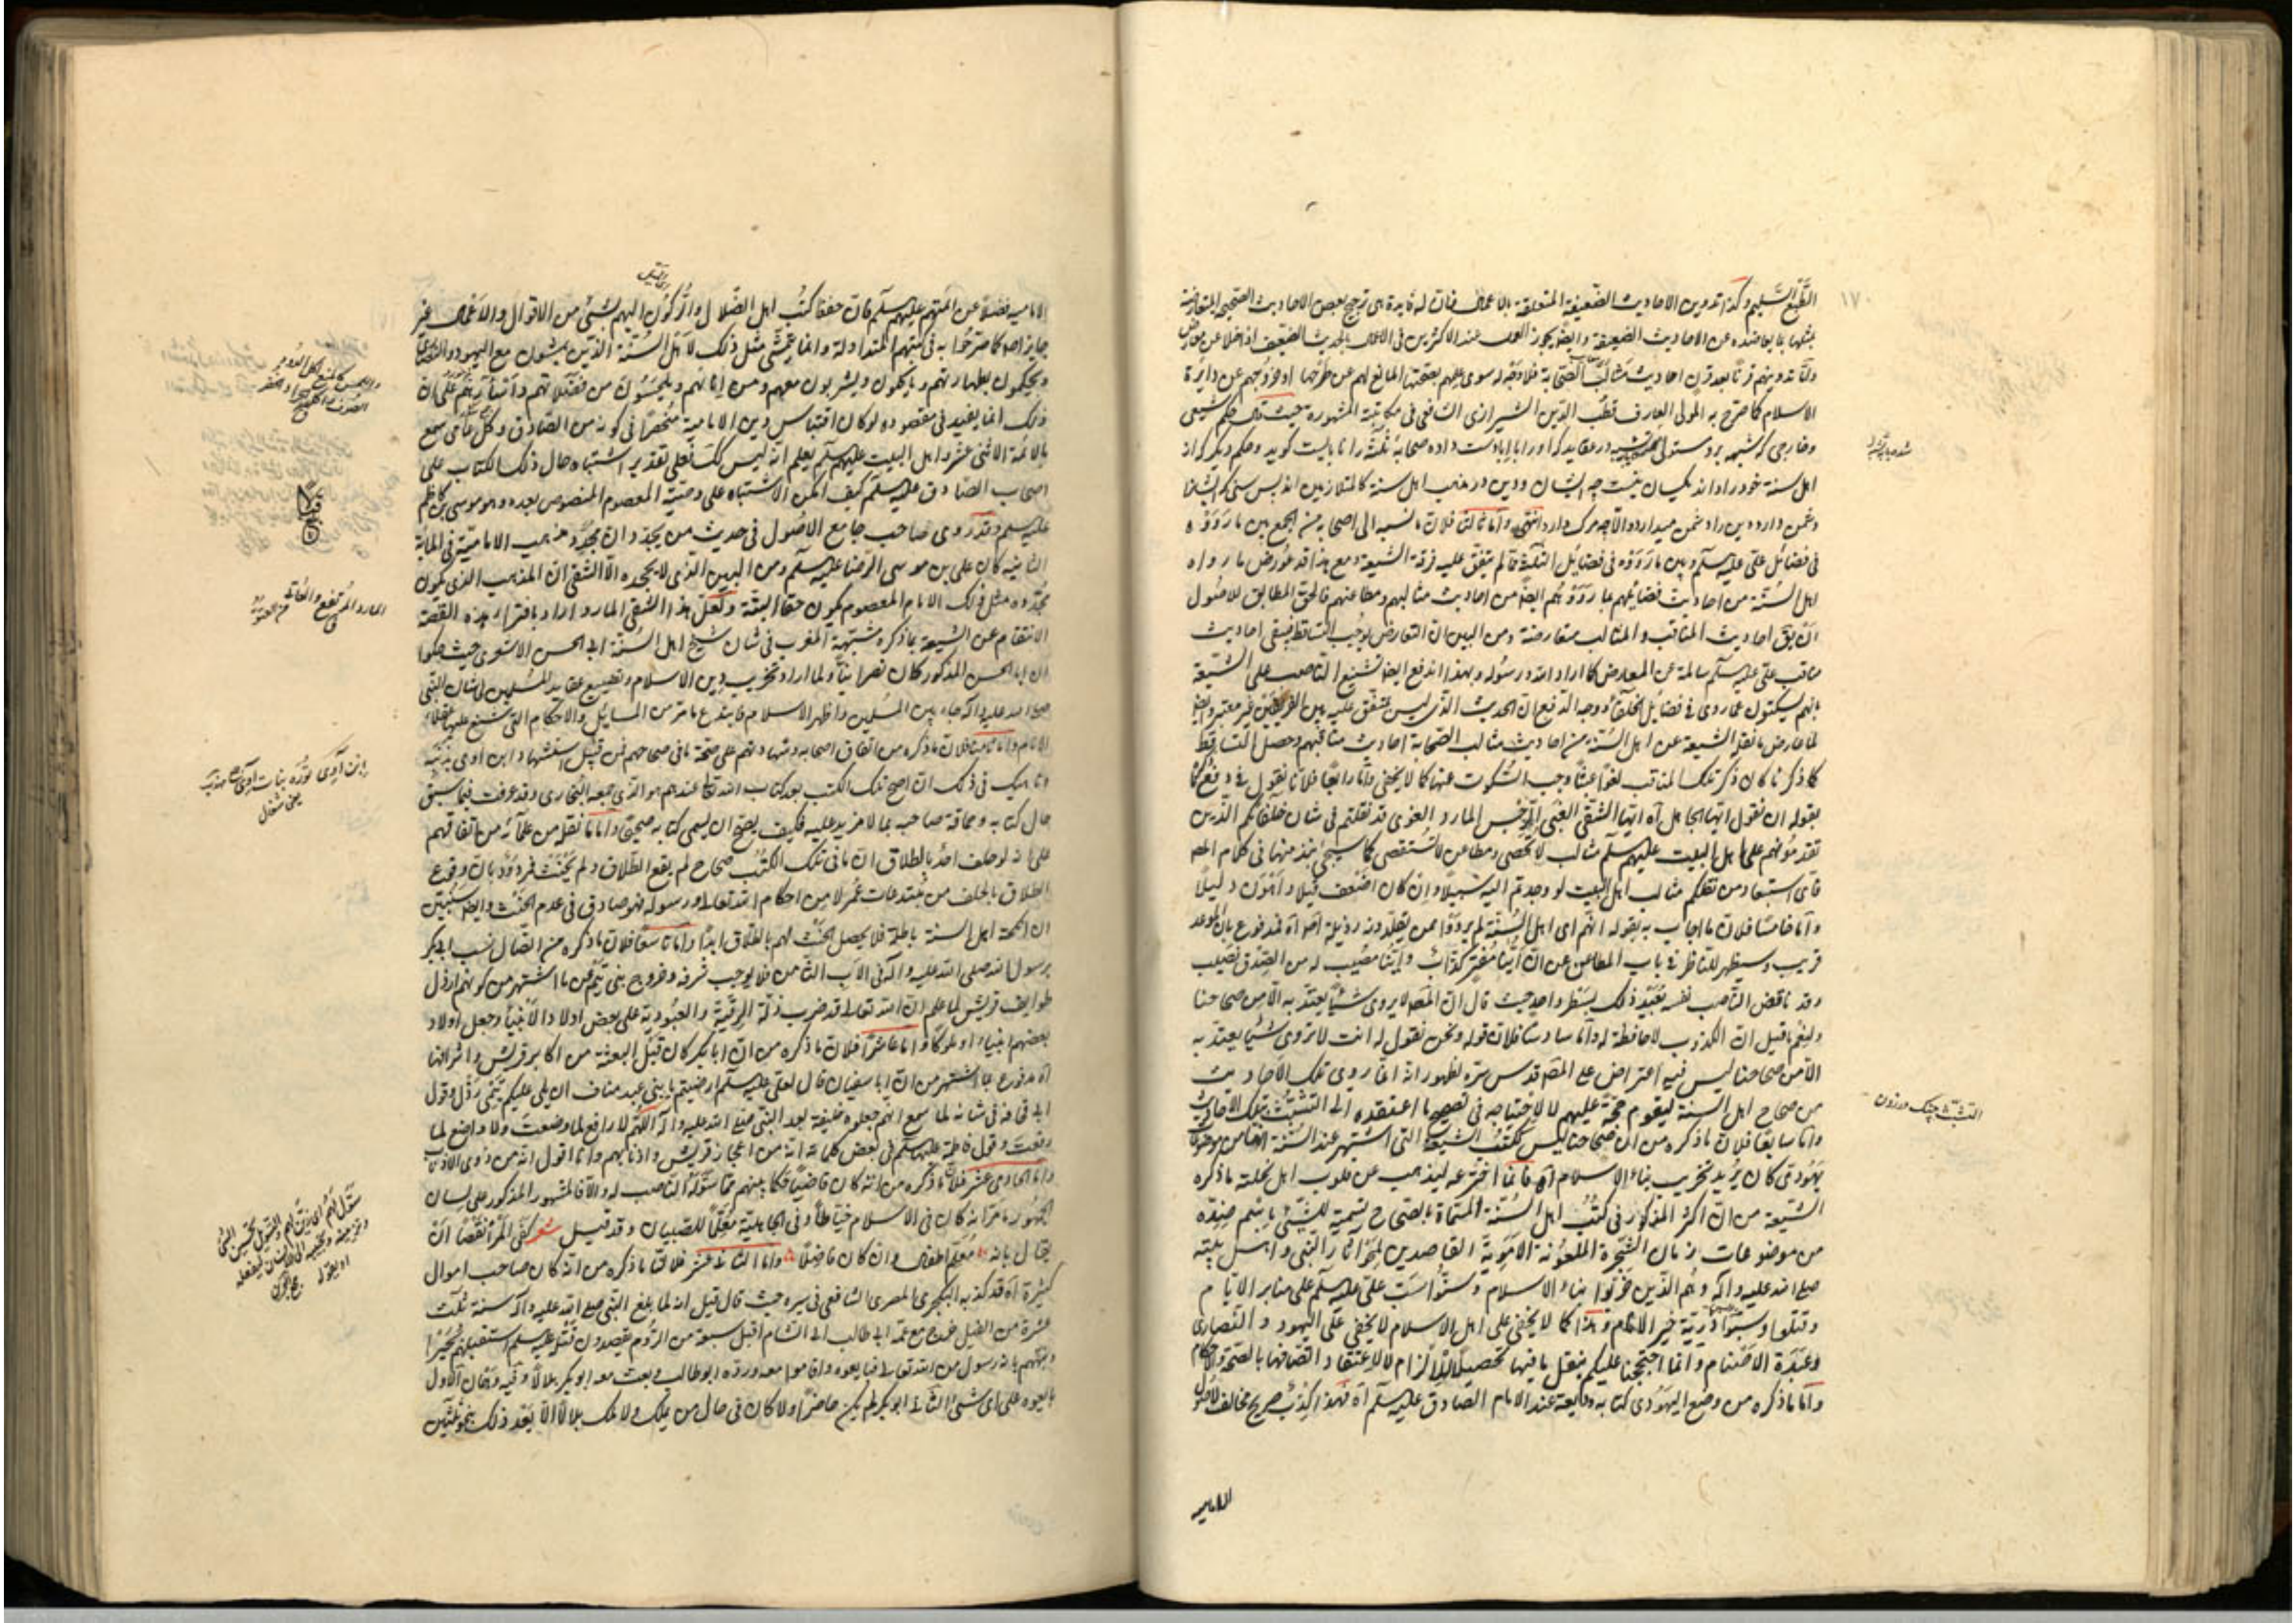 ١٧٠
الطبع السليم وكذا تدوين الاحاديث الضعيفة المتعلقة بالاعمال فان له فايدة هي ترجيح بعض الاحاديث الصحيحة المتعارضة
بمثلها بما يعاضده من الاحاديث الضعيفة وايضا يجوز العمل عند الاكثرين في الاعمال بالحديث الضعيف اذا خلا عن معارض
واما تدوينهم قرنا بعد قرن احاديث مثالب الصحابة فلا وجه له سوى علمهم بصحتها المانع لهم عن طرحها او خروجهم عن دايرة
الاسلام كما صرح به المولى العارف قطب الدين الشيرازي الشافعي في مكاتبته المشهورة حيث قال حكم شيعي
وخارجي كه شبهه بر دوستي در عقايد كه او را با اباديت داده صحابه ثلث را نا بايست كويد وحكم ديكر كه از
اهل سنة خود را داند يكسان نيست چه ايشان ودين در مذهب اهل سنة كالمتلازمين اند پس سني كه ايشانرا
دشمن دارد دين را دشمن ميدارد والا چه مرك دارد انتهى واما ثالثا فلان ما نسبه الى اصحابه من الجمع بين ما رووه
في فضائل علي عليه سلم وبين ما رووه في فضايل الثلثة مما لم يتفق عليه فرقة الشيعة ومع هذا قد عورض ما رواه
اهل السنة من احاديث فضايلهم بما رووه هم ايضا من احاديث مثالبهم ومطاعنهم فالحق المطابق للاصول
ان بقى احاديث المناقب والمثالب متعارضة ومن البين ان التعارض يوجب التساقط فيبقى احاديث
مناقب علي عليه سلم سالمة عن المعارض كما اراد الله ورسوله وبهذا اندفع ايضا تشنيع الناصب على الشيعة
بانهم يسكتون عما روى في فضايل الخلفاء ووجه الدفع ان الحديث الذي ليس بمتفق عليه بين الفريقين غير معتبر وايضا
لما عارض ما نقله الشيعة عن اهل السنة من احاديث مثالب الصحابة احاديث مناقبهم وحصل التساقط
كما ذكرنا كان ذكر تلك المناقب لغوا عبثا وجب السكوت عنها كما لا يخفى واما رابعا فلانا نقول في دفع
بقوله ان نقول ايها الجاهل اه ايها الشقي الغبي الرجس المارد الغوي قد نقلتم في شان خلفائكم الذين
تقدموهم على اهل البيت عليهم سلم مثالب لا تحصى ومطاعن لا تستقصى كما سيجئ نبذ منها في كلام المصه
فاى استبعاد من نقلكم مثالب اهل البيت لو وجدتم اليه سبيلا وان كان اضعف قيلا واهون دليلا
واما خامسا فلان ما اجاب به بقوله انهم اى اهل السنة لم يرووا ممن يعلمونه رذيلة اصلا اه مدفوع بان الوعد
قريب وسيظهر للناظر في باب المطاعن عن ان اينا مفتر كذاب واينا مصيب له من الصدق نصيب
وقد ناقض الناصب نفسه بعيد ذلك بسطر واحد حيث قال ان المصه لا يروى شيئا يعتد به الا من صحاحنا
ولنعم ما قيل ان الكذوب لا حافظة له واما سادسا فلان قوله ونحن نقول له انت لا تروى شيئا يعتد به
الا من صحاحنا ليس فيه اعتراض على المصه قدس سره لظهور انه انما روى تلك الاحاديث
من صحاح اهل السنة ليقوم حجة عليهم لا لاحتياجه في تصحيح ما اعتقده الى التشبث بتلك الاحاديث
واما سابعا فلان ما ذكره من ان صحاحنا ليس ككتب الشيعة التى اشتهر عند السنة انها من موضوعات
يهودى كان يريد تخريب بناء الاسلام اه فانما اخترعه ليذهب عن قلوب اهل نحلته ما ذكره
الشيعة من ان اكثر المذكور في كتب اهل السنة المسماة بالصحاح تسمية للشئ باسم ضده
من موضوعات زمان الشجرة الملعونة الاموية القاصدين لمحو اثار النبى واهل بيته
صلى الله عليه واله وهم الذين خربوا بناء الاسلام وسنوا سب علي عليه سلم على منابر الانام
وقتلوا وسبوا ذرية خير الانام وهذا كما لا يخفى على اهل الاسلام لا يخفى على اليهود والنصارى
وعبدة الاصنام وانما احتججنا عليكم بنقل ما فيها تحصيلا للالزام لا لاعتقاد اتصافها بالصحة والاحكام
واما ما ذكره من وضع اليهودى كتابه ووديعة عند الامام الصادق عليه سلم اه فهذا كذب صريح مخالف لاصول
الاماميه
التشبث چنك در زدن
الاماميه فضلا عن ائمتهم عليهم سلم فان حفظ كتب اهل الضلال والركون اليهم بشئ من الاقوال والاعمال غير
جايز اصلا كما صرحوا به في كتبهم المتداولة وانما يتمشى مثل ذلك لاهل السنة الذين يمشون مع اليهود والنصارى
ويحكمون بطهارتهم وياكلون ويشربون معهم ومن انائهم ويلحسون من فضلاتهم واسآرهم على ان
ذلك انما يفيد في مقصوده لو كان اقتباس دين الامامية منحصرا في كونه من الصادق وكل من سمع
بالائمة الاثنى عشر واهل البيت عليهم سلم يعلم انه ليس كك فعلى تقدير اشتباه حال ذلك الكتاب على
اصحاب الصادق عليه سلم كيف امكن الاشتباه على وصيه المعصوم المنصوص بعده وهو موسى بن كاظم
عليه سلم وقد روى صاحب جامع الاصول في حديث من يجدد ان مجدد مذهب الامامية في الماية
الثانيه كان علي بن موسى الرضا عليه سلم ومن البين الذى لا يجحده الا الشقى ان المذهب الذى يكون
مجدده مثل ذلك الامام المعصوم يكون حقا البتة ولعل هذا الشقى المارد اراد بافتراء هذه القصة
الانتقام عن الشيعة بما ذكره مشبهة المغرب في شان شيخ اهل السنة ابى الحسن الاشعرى حيث حكوا
ان ابا الحسن المذكور كان نصرانيا ولما اراد تخريب دين الاسلام وتضييع عقايد المسلمين لشان النبى
صلى الله عليه واله جاء بين المسلمين واظهر الاسلام فابتدع ما مر من المسايل والاحكام التى شنع عليها عقلاء
الانام واما ثامنا فلان ما ذكره من اتفاق اصحابه وشهادتهم على صحة ما في صحاحهم فمن قبيل استشهاد ابن اوى بذنبه
وناهيك في ذلك ان اصح تلك الكتب بعد كتاب الله تعالى عندهم هو الذى جمعه البخارى وقد عرفت فيما سبق
حال كتابه وحماقة صاحبه بما لا مزيد عليه فكيف يصح ان يسمى كتابه صحيحا واما ما نقله من علمائه من اتفاقهم
على انه لو حلف احد بالطلاق ان ما في تلك الكتب صحاح لم يقع الطلاق ولم يحنث فمردود بان وقوع
الطلاق بالحلف من مبتدعات عمر لا من احكام الله تعالى ورسوله فهو صادق في عدم الحنث وايضا سنبين
ان انكحة اهل السنة باطلة فلا يحصل الحنث لهم بالطلاق ابدا واما تاسعا فلان ما ذكره من اتصال نسب ابى بكر
برسول الله صلى الله عليه واله في الاب الثامن فلا يوجب شرفه وخروج بنى تيم عن ما اشتهر من كونهم ارذل
طوايف قريش لما علم ان الله تعالى قد ضرب ذلة الرقية والعبودية على بعض اولاد الانبياء وجعل اولاد
بعضهم انبياء او ملوكا واما عاشرا فلان ما ذكره من ان ابا بكر كان قبل البعثة من اكابر قريش واشرافها
اه مدفوع بما اشتهر من ان ابا سفيان قال لعلى عليه سلم ارضيتم يا بنى عبد مناف ان يلى عليكم تيمى رذل وقول
ابى قحافة في شانه لما سمع انهم جعلوه خليفة بعد النبى صلى الله عليه واله اللهم لا رافع لما وضعت ولا واضع لما
رفعت وقول فاطمة عليها سلم في بعض كلماته انه من اعجاز قريش واذنابهم وانا اقول انه من ذوى الاذناب
واما الحادى عشر فلان ما ذكره من انه كان قاضيا حكما بينهم مما سوله الناصب له والا فالمشهور المذكور على لسان
الجمهور ما مر انه كان في الاسلام خياطا وفى الجاهلية معلما للصبيان وقد قيل شعر كفى المرء نقصا ان
يقال بانه معلم اطفال وان كان فاضلا واما الثانى عشر فلان ما ذكره من انه كان صاحب اموال
كثيرة اه قد كذبه البكجرى المصرى الشافعى في سيره حيث قال قيل انه لما بلغ النبى صلى الله عليه واله سنة ثلث
عشرة من الفيل خرج مع عمه ابى طالب الى الشام اقبل سبعة من الروم يقصدون قتله عليه سلم استقبلهم بحيرا
ونبههم بانه رسول من الله تعالى فبايعوه واقاموا معه ورده ابو طالب وبعث معه ابو بكر بلالا وفيه وهمان الاول
بايعوه على اى شئ الثانى ابو بكر لم يكن حاضرا ولا كان في حال من يملك ولا ملك بلالا الا بعد ذلك بنحو ثلثين
المارد المرتفع والعاتى
ابن آوى
يعنى شغال